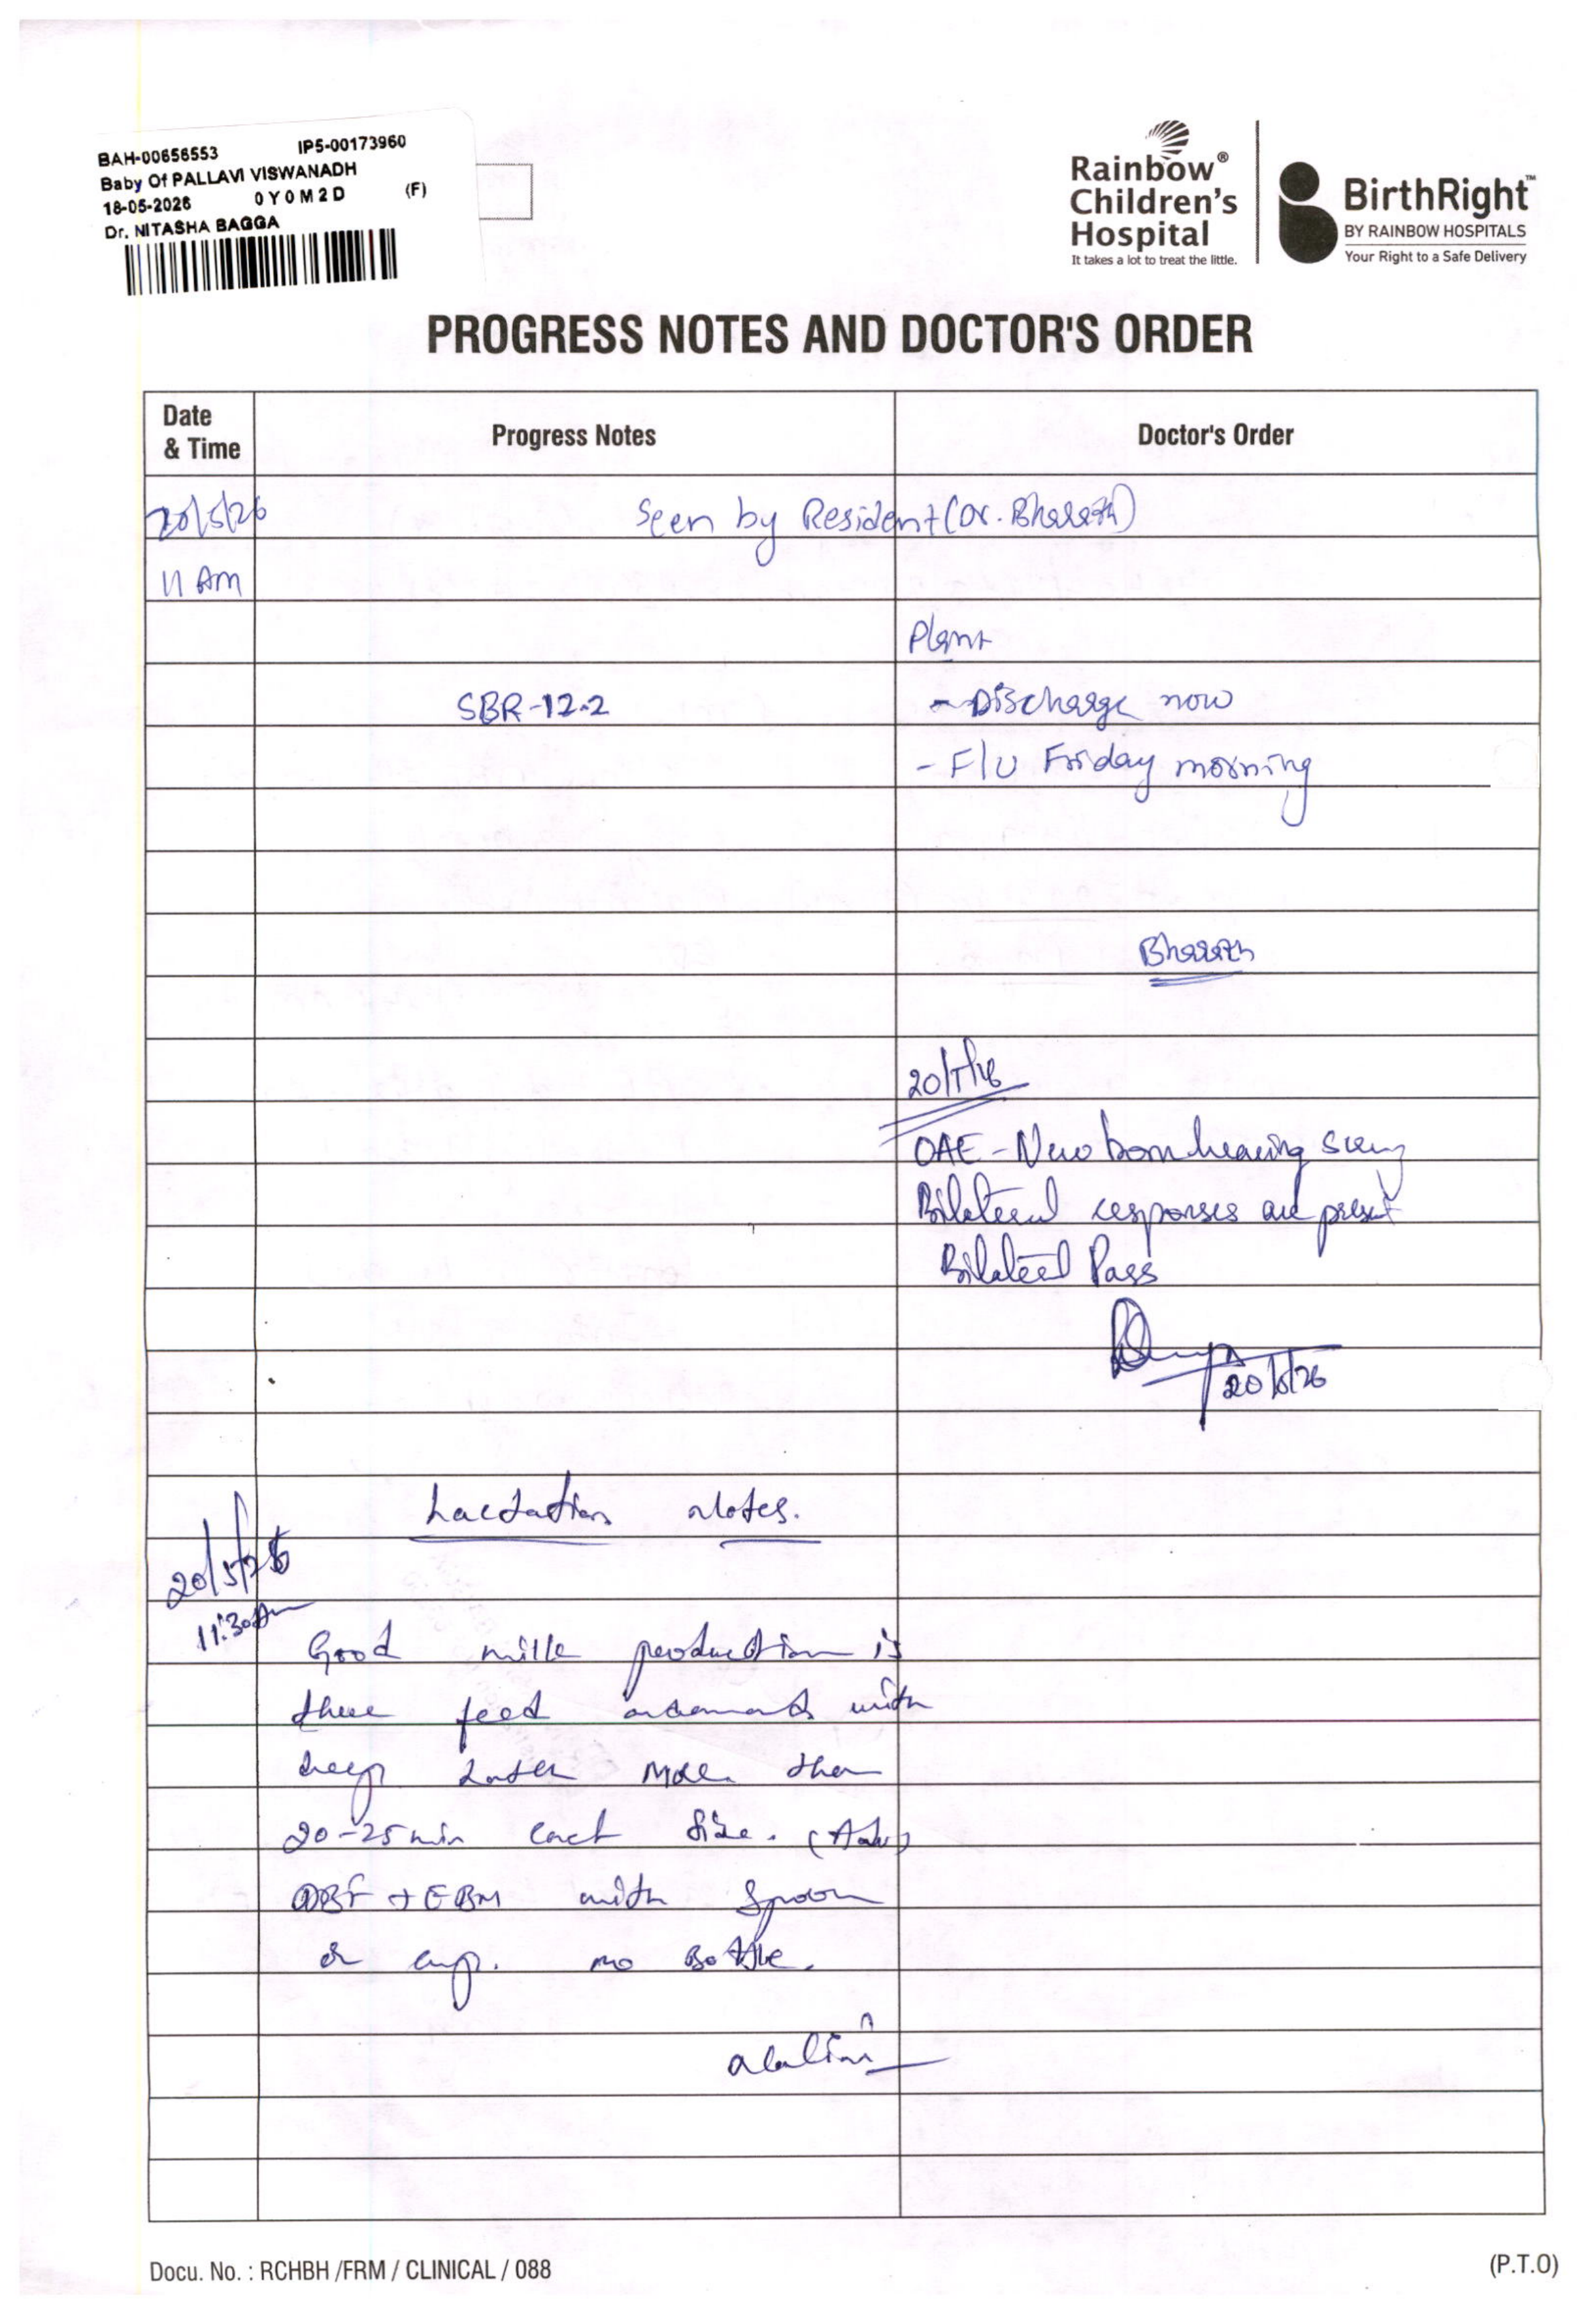 BAH-00656553 IP5-00173960
Baby Of PALLAVI VISWANADH
18-05-2026 0Y0M2D (F)
Dr. NITASHA BAGGA
Rainbow®
Children's
Hospital
It takes a lot to treat the little.
BirthRight™
BY RAINBOW HOSPITALS
Your Right to a Safe Delivery
PROGRESS NOTES AND DOCTOR'S ORDER
Date
& Time
Progress Notes
Doctor's Order
20/5/26 Seen by Resident (Dr. Bharath)
11 Am
Plan
SBR-12.2 - Discharge now
- F/U Friday morning
Bharath
OAE - New born hearing
Bilateral responses are present
Bilateral Pass
20/5/26
Lactation Notes.
20/5/26
11:30Am
Good milk production is
there feed with
deep latch more than
20-25 min each side.
DBF + EBM with spoon
or cup. no Bottle.
Docu. No. : RCHBH /FRM / CLINICAL / 088
(P.T.O)